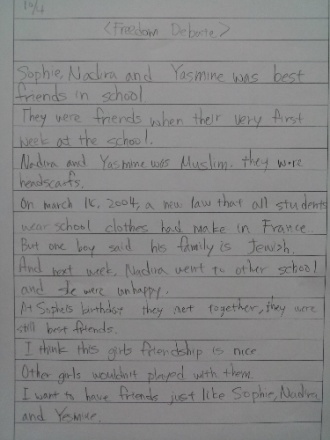 10/4
<Freedom Debate>
Sophie, Nadira and Yasmine was best
friends in school.
They were friends when their very first
week at the school.
Nadira and Yasmine was Muslim. they wore
headscarfs.
On march 15, 2004, a new law that all students
wear school clothes had make in France.
But one boy said his family is Jewish.
And next week, Nadira went to other school
and she were unhappy.
At Sophie's birthday they met together, they were
still best friends.
I think this girls friendship is nice
Other girls wouldn't played with them.
I want to have friends just like Sophie, Nadira,
and Yasmine.